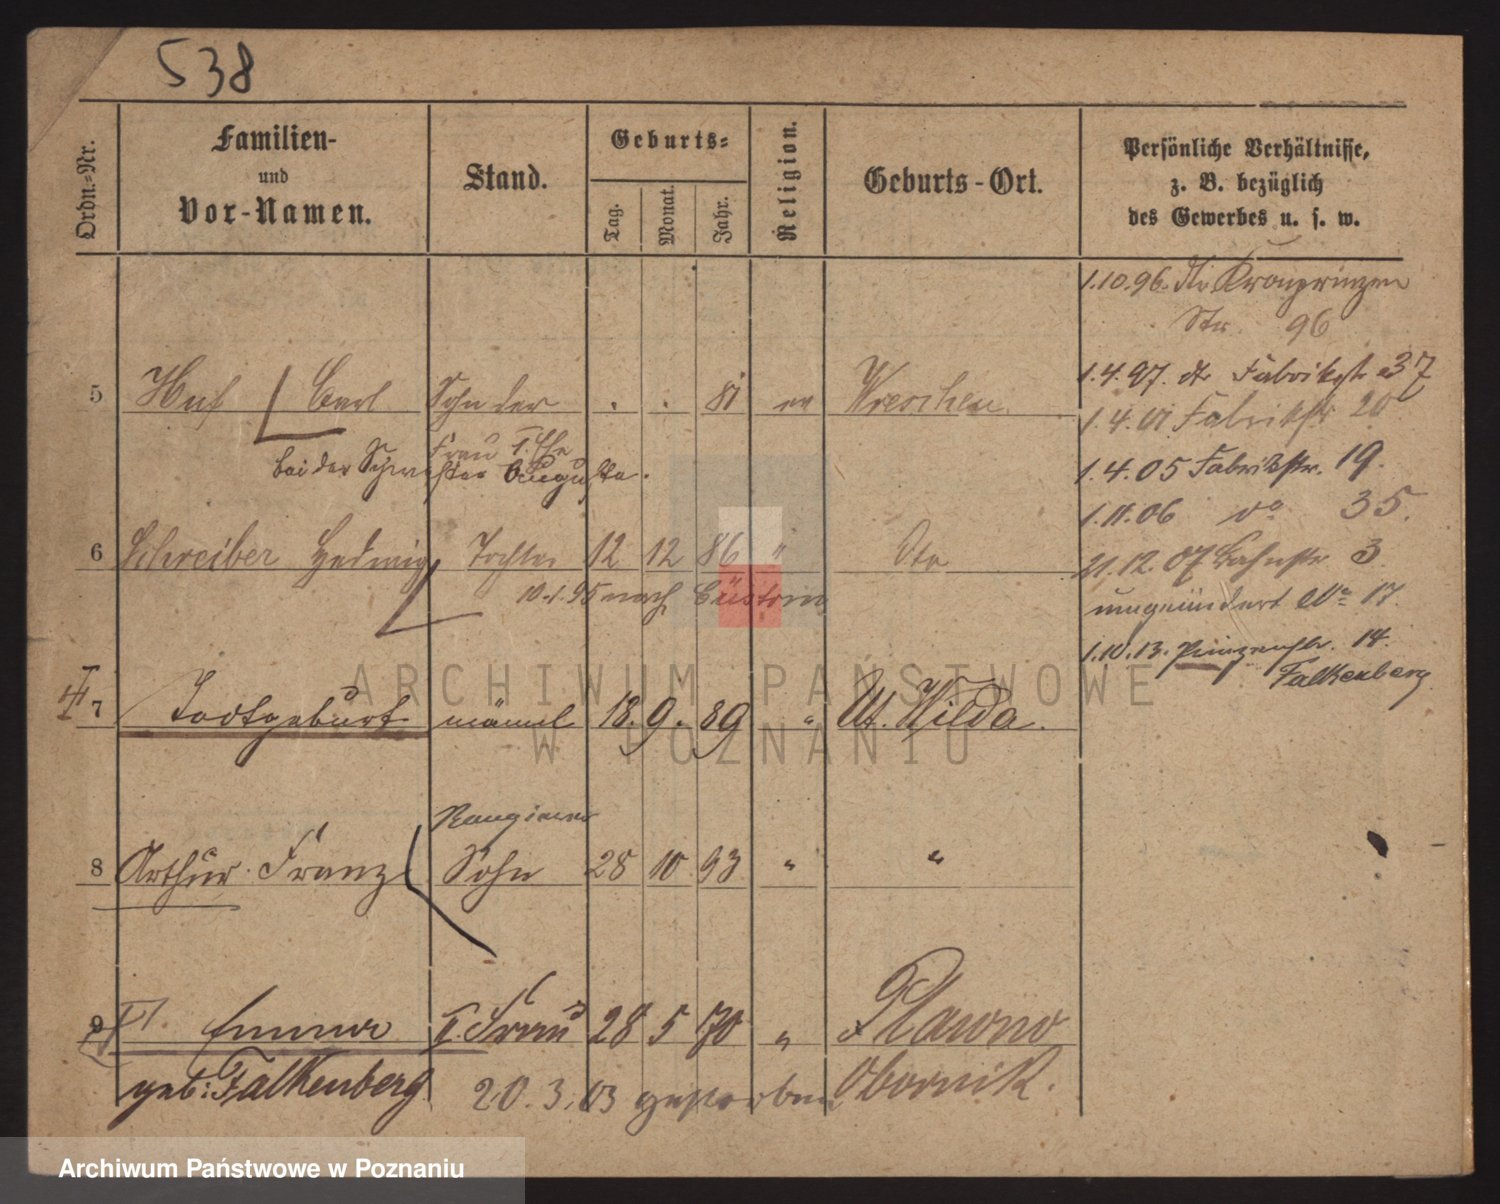 538
Ordn.-Nr.
Familien-
und
Vor-Namen.
Stand.
Geburts-
Tag.
Monat.
Jahr.
Religion.
Geburts-Ort.
Persönliche Verhältnisse,
z. B. bezüglich
des Gewerbes u. s. w.
1.10.96. Kronprinzen
Str. 96
1.4.97. Fabrikstr 37
1.4.01 Fabrikstr 20
1.4.05 Fabrikstr. 19.
1.11.06 do 35.
21.12.07 Bahnstr 3
umgeändert No 17.
1.10.13. Prinzenstr. 14.
Falkenberg
5 Carl Sohn der 81 ev Wreschen
Frau I. Ehe
bei der Schwester Auguste.
6 Schreiber Hedwig Tochter 12 12 86 " dto
10.1.95 nach Cüstrin
7 Todtgeburt männl 18. 9. 89 " Ut. Wilda.
Rangierer
8 Arthur Franz Sohn 28 10 93 " "
9 Emma II. Frau 28 5 70 " Plawno
geb: Falkenberg 20.3.03 gestorben Obornik.
ARCHIWUM PAŃSTWOWE
W POZNANIU
Archiwum Państwowe w Poznaniu